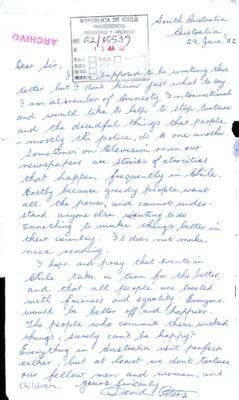 ARCHIVO
REPUBLICA DE CHILE
PRESIDENCIA
REGISTRO Y ARCHIVO
NR. 92/15539
A 13 JUL 92
South Australia
Australia
29 June '92
Dear Sir,
I supposed to be writing this
letter but I don't know just what to say.
I am a member of Amnesty International
and would like to help to stop torture
and the dreadful things that people
- mostly the police, do to one another.
Sometimes on television, or in our
newspapers are stories of atrocities
that happen frequently in Chile.
Mostly because greedy people want
all the power, and cannot under-
stand anyone else wanting to do
something to make things better in
their country. It does not make
nice reading.
I hope and pray that events in
Chile take a turn for the better,
and that all people are treated
with fairness and equality. Everyone
would be better off and happier.
The people who commit these wicked
things, surely can't be happy?
Everything in Australia isn't perfect
either, but at least we don't torture
our fellow men and women, and
children. Yours Sincerely
David